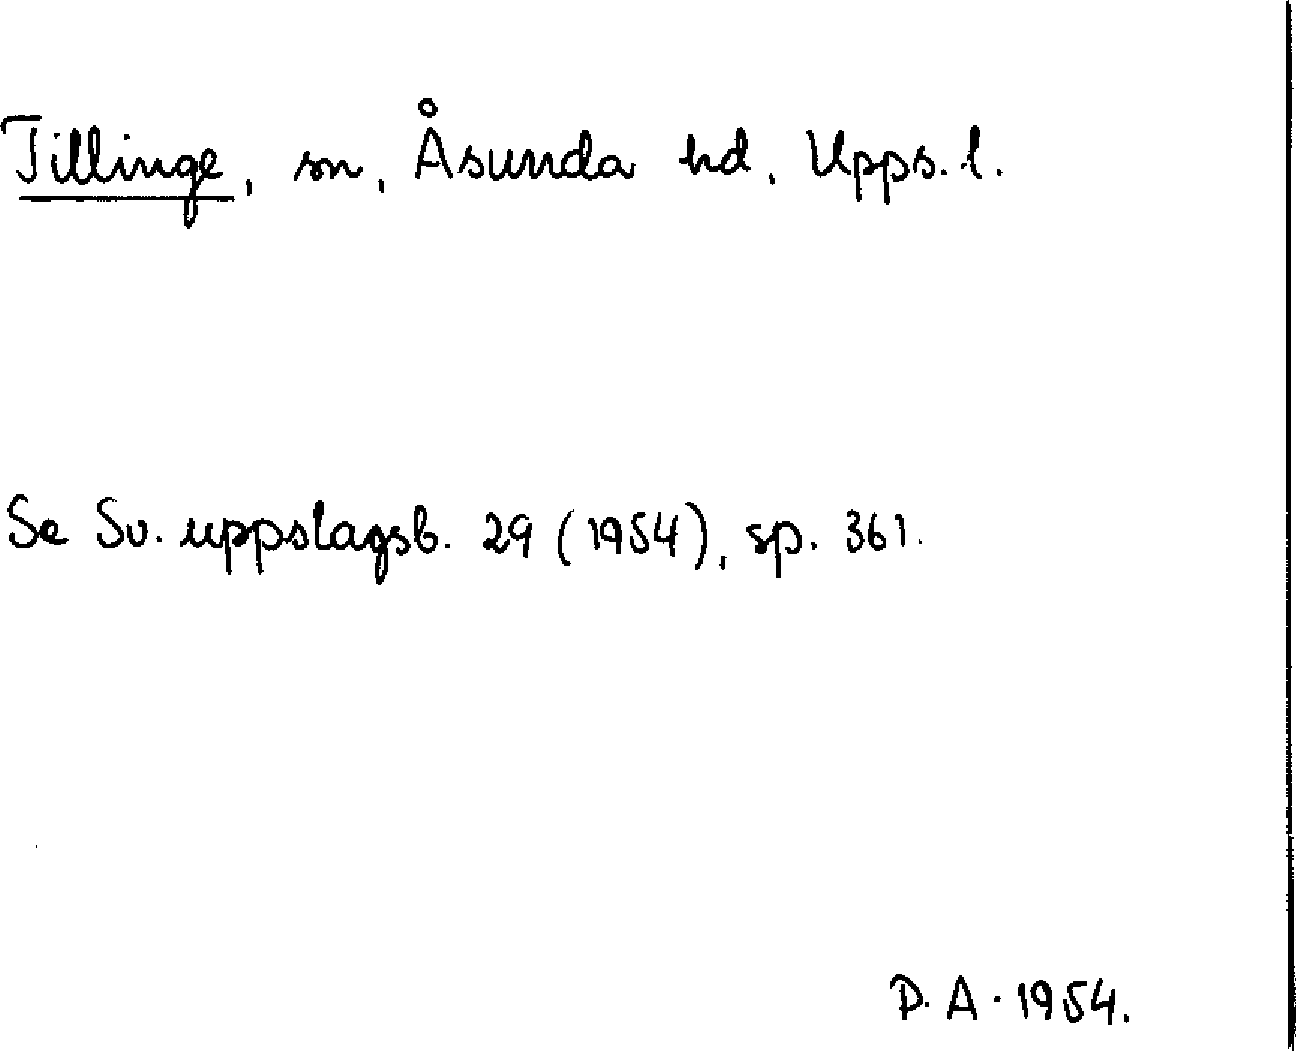 Tillinge, sn, Åsunda hd, Upps. l.
Se Sv. uppslagsb. 29 (1954), sp. 361.
D. A. 1954.